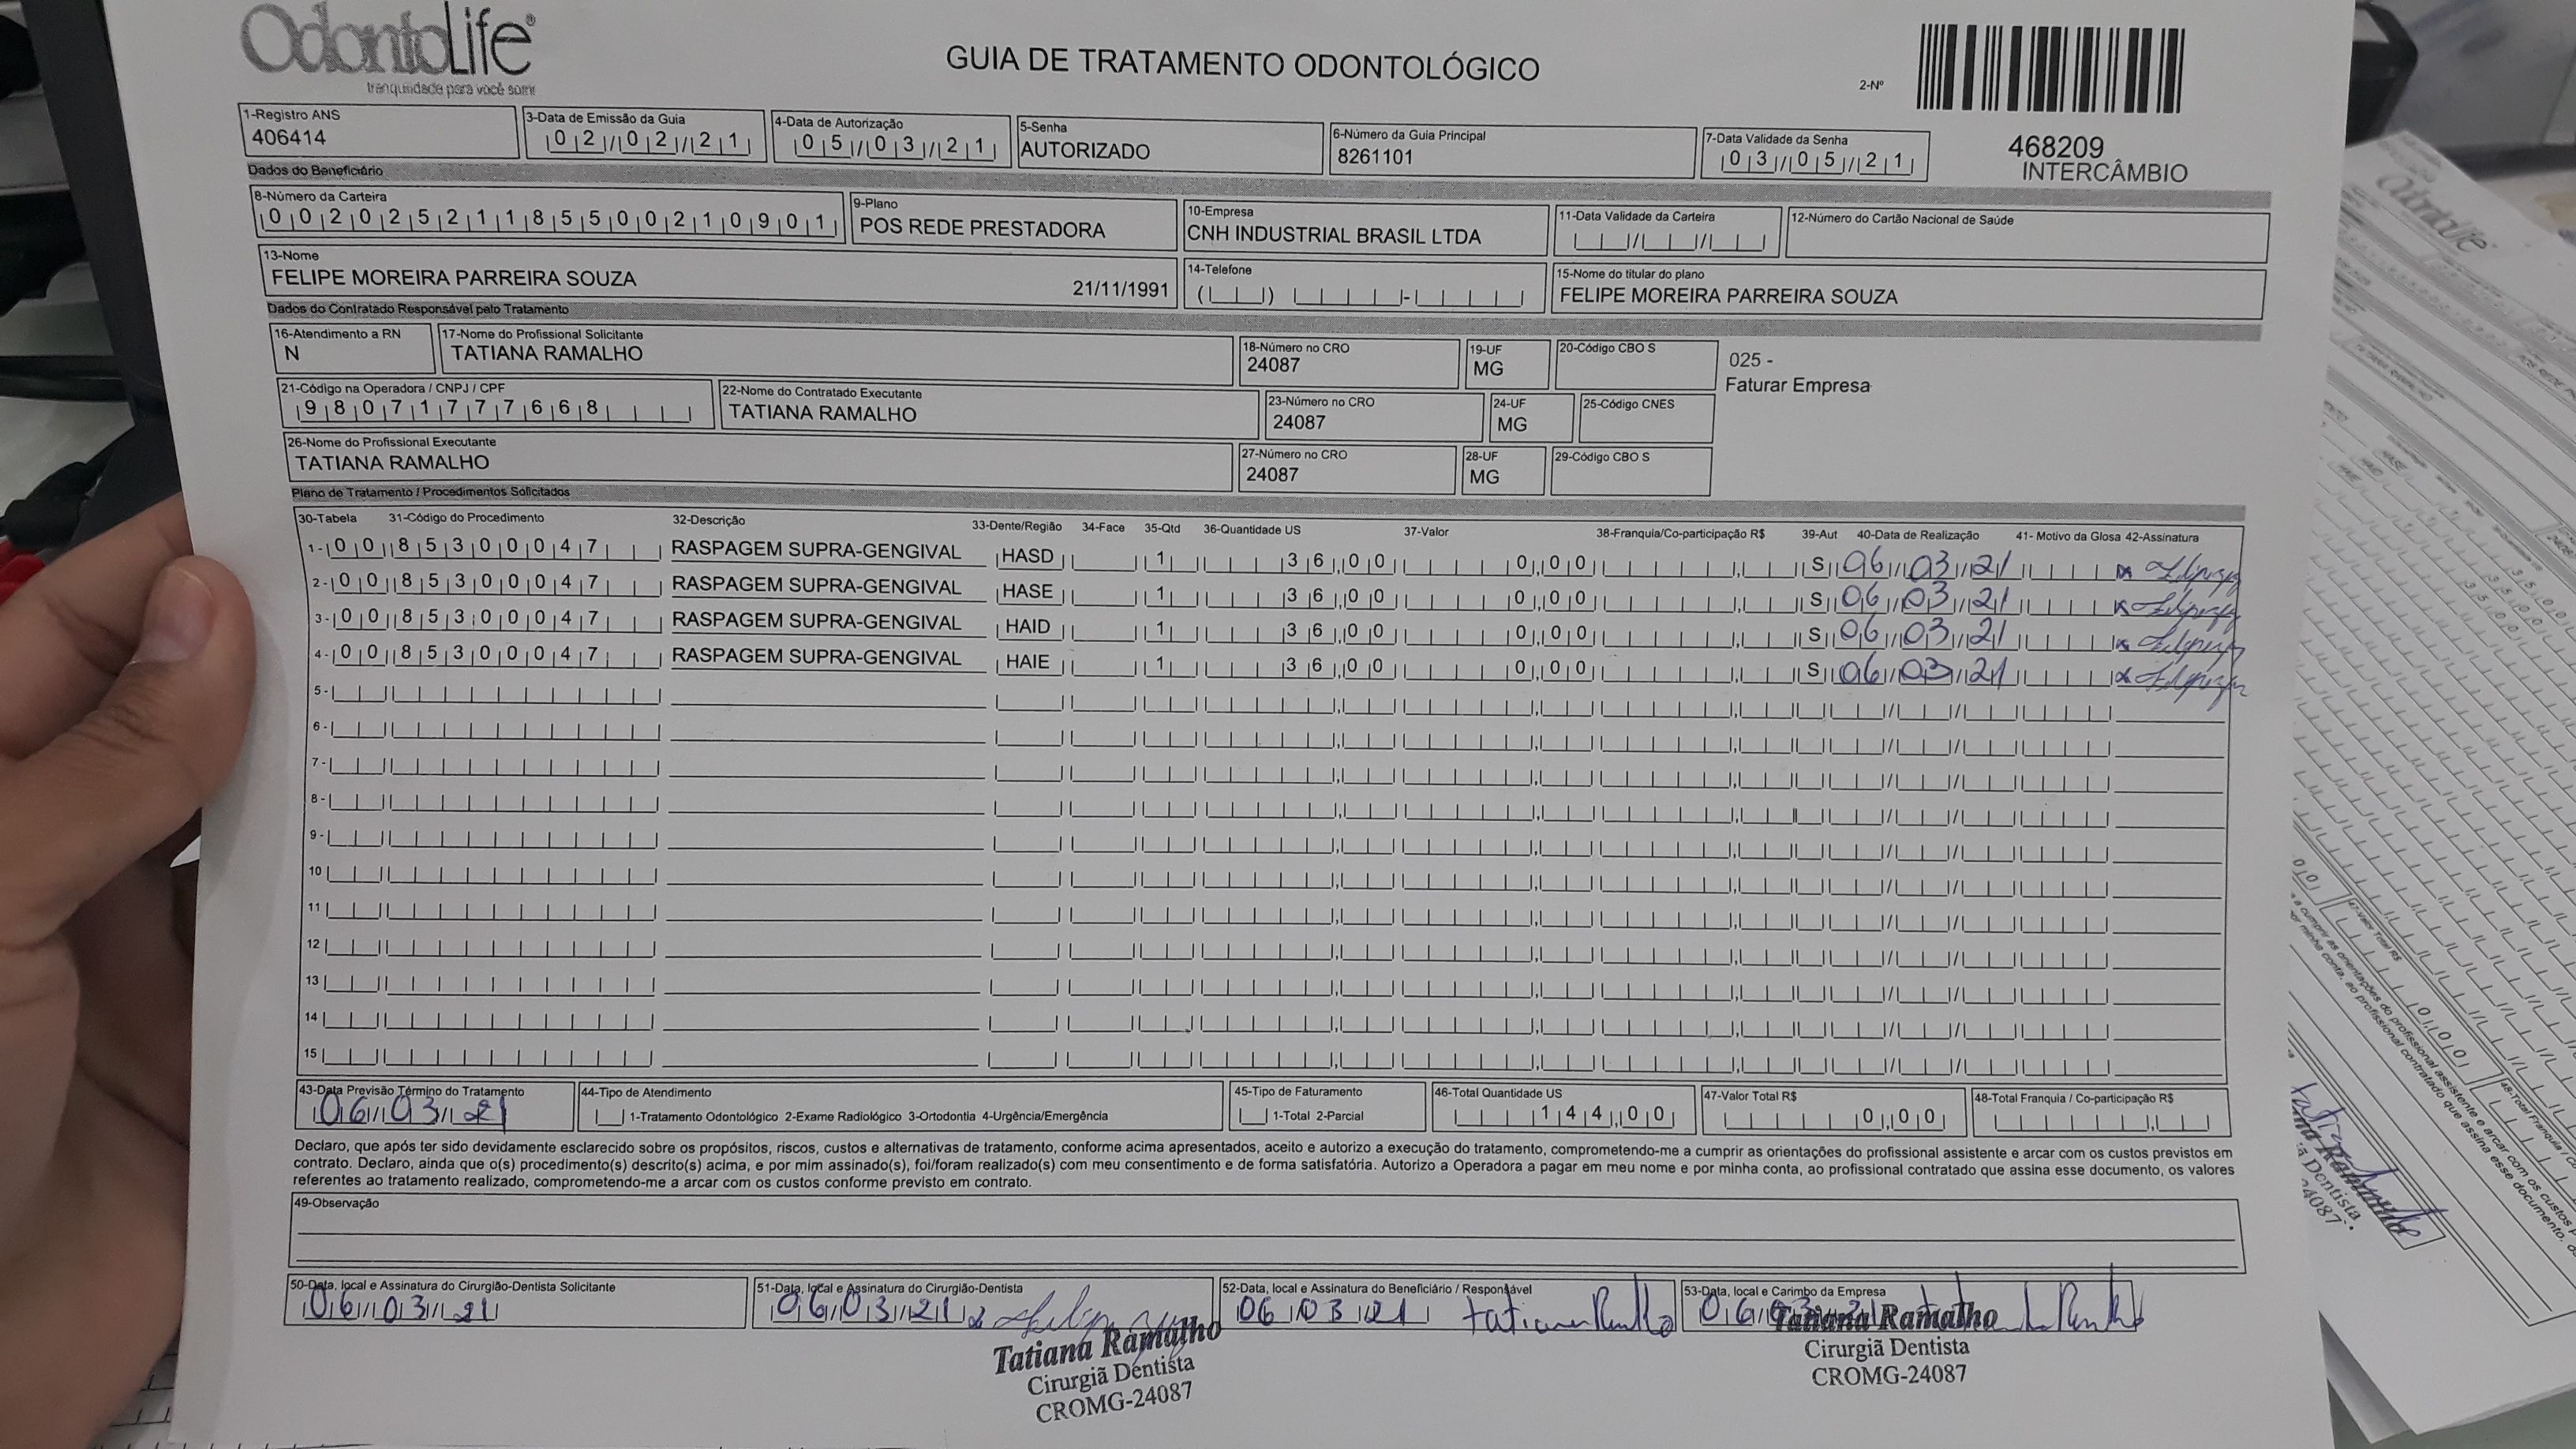 OdontoLife®
tranquilidade para você sorrir
GUIA DE TRATAMENTO ODONTOLÓGICO
2-Nº
468209
INTERCÂMBIO
1-Registro ANS
406414
3-Data de Emissão da Guia
02/02/21
4-Data de Autorização
05/03/21
5-Senha
AUTORIZADO
6-Número da Guia Principal
8261101
7-Data Validade da Senha
03/05/21
Dados do Beneficiário
8-Número da Carteira
00202521185500210901
9-Plano
POS REDE PRESTADORA
10-Empresa
CNH INDUSTRIAL BRASIL LTDA
11-Data Validade da Carteira
12-Número do Cartão Nacional de Saúde
13-Nome
FELIPE MOREIRA PARREIRA SOUZA 21/11/1991
14-Telefone
15-Nome do titular do plano
FELIPE MOREIRA PARREIRA SOUZA
Dados do Contratado Responsável pelo Tratamento
16-Atendimento a RN
N
17-Nome do Profissional Solicitante
TATIANA RAMALHO
18-Número no CRO
24087
19-UF
MG
20-Código CBO S
025 -
Faturar Empresa
21-Código na Operadora / CNPJ / CPF
98071777668
22-Nome do Contratado Executante
TATIANA RAMALHO
23-Número no CRO
24087
24-UF
MG
25-Código CNES
26-Nome do Profissional Executante
TATIANA RAMALHO
27-Número no CRO
24087
28-UF
MG
29-Código CBO S
Plano de Tratamento / Procedimentos Solicitados
30-Tabela 31-Código do Procedimento 32-Descrição 33-Dente/Região 34-Face 35-Qtd 36-Quantidade US 37-Valor 38-Franquia/Co-participação R$ 39-Aut 40-Data de Realização 41- Motivo da Glosa 42-Assinatura
1- 00 85300047 RASPAGEM SUPRA-GENGIVAL HASD 1 36,00 0,00 S 06/03/21
2- 00 85300047 RASPAGEM SUPRA-GENGIVAL HASE 1 36,00 0,00 S 06/03/21
3- 00 85300047 RASPAGEM SUPRA-GENGIVAL HAID 1 36,00 0,00 S 06/03/21
4- 00 85300047 RASPAGEM SUPRA-GENGIVAL HAIE 1 36,00 0,00 S 06/03/21
5-
6-
7-
8-
9-
10
11
12
13
14
15
43-Data Previsão Término do Tratamento
06/03/21
44-Tipo de Atendimento
1-Tratamento Odontológico 2-Exame Radiológico 3-Ortodontia 4-Urgência/Emergência
45-Tipo de Faturamento
1-Total 2-Parcial
46-Total Quantidade US
144,00
47-Valor Total R$
0,00
48-Total Franquia / Co-participação R$
Declaro, que após ter sido devidamente esclarecido sobre os propósitos, riscos, custos e alternativas de tratamento, conforme acima apresentados, aceito e autorizo a execução do tratamento, comprometendo-me a cumprir as orientações do profissional assistente e arcar com os custos previstos em
contrato. Declaro, ainda que o(s) procedimento(s) descrito(s) acima, e por mim assinado(s), foi/foram realizado(s) com meu consentimento e de forma satisfatória. Autorizo a Operadora a pagar em meu nome e por minha conta, ao profissional contratado que assina esse documento, os valores
referentes ao tratamento realizado, comprometendo-me a arcar com os custos conforme previsto em contrato.
49-Observação
50-Data, local e Assinatura do Cirurgião-Dentista Solicitante
06/03/21
51-Data, local e Assinatura do Cirurgião-Dentista
06/03/21
Tatiana Ramalho
Cirurgiã Dentista
CROMG-24087
52-Data, local e Assinatura do Beneficiário / Responsável
06/03/21 Tatiana Ramalho
53-Data, local e Carimbo da Empresa
06/03/21
Tatiana Ramalho
Cirurgiã Dentista
CROMG-24087